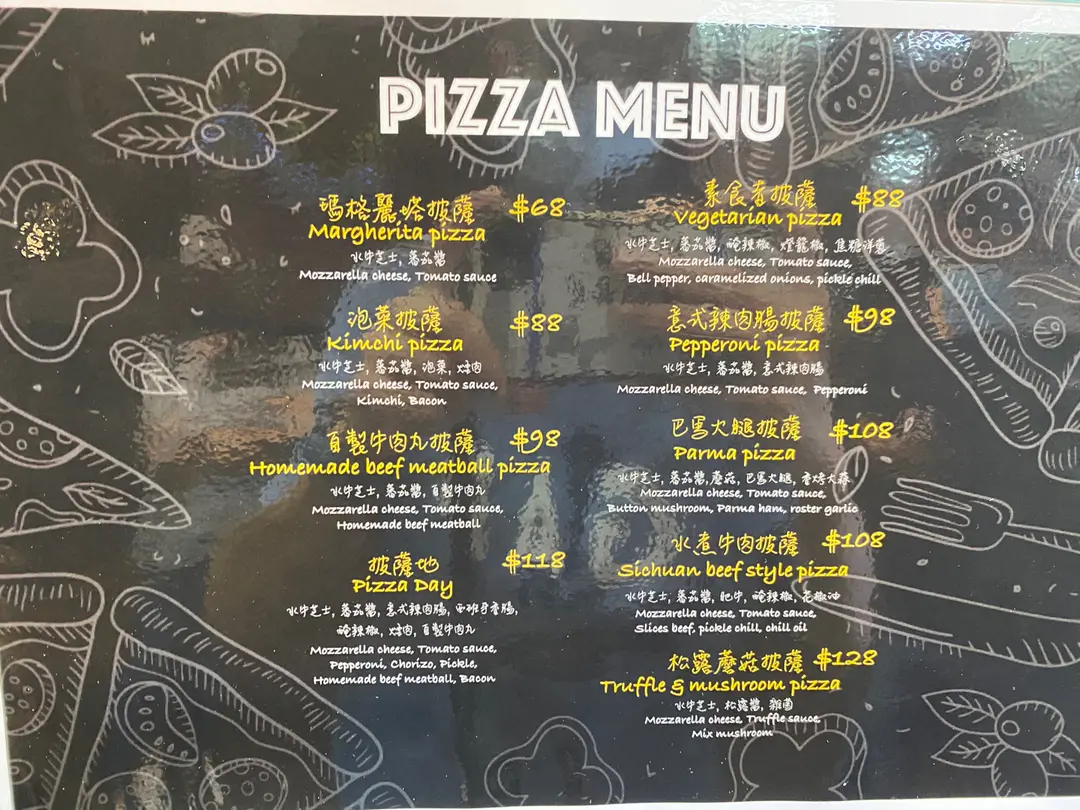 PIZZA MENU
瑪格麗塔披薩 $68
Margherita pizza
水牛芝士, 蕃茄醬
Mozzarella cheese, Tomato sauce
泡菜披薩 $88
Kimchi pizza
水牛芝士, 蕃茄醬, 泡菜, 烟肉
Mozzarella cheese, Tomato sauce,
Kimchi, Bacon
自製牛肉丸披薩 $98
Homemade beef meatball pizza
水牛芝士, 蕃茄醬, 自製牛肉丸
Mozzarella cheese, Tomato sauce,
Homemade beef meatball
披薩地 $118
Pizza Day
水牛芝士, 蕃茄醬, 意式辣肉腸, 西班牙香腸,
醃辣椒, 烟肉, 自製牛肉丸
Mozzarella cheese, Tomato sauce,
Pepperoni, Chorizo, Pickle,
Homemade beef meatball, Bacon
素食者披薩 $88
Vegetarian pizza
水牛芝士, 蕃茄醬, 醃辣椒, 燈籠椒, 焦糖洋蔥
Mozzarella cheese, Tomato sauce,
Bell pepper, caramelized onions, pickle chill
意式辣肉腸披薩 $98
Pepperoni pizza
水牛芝士, 蕃茄醬, 意式辣肉腸
Mozzarella cheese, Tomato sauce, Pepperoni
巴馬火腿披薩 $108
Parma pizza
水牛芝士, 蕃茄醬, 蘑菇, 巴馬火腿, 香烤大蒜
Mozzarella cheese, Tomato sauce,
Button mushroom, Parma ham, roster garlic
水煮牛肉披薩 $108
Sichuan beef style pizza
水牛芝士, 蕃茄醬, 肥牛, 醃辣椒, 花椒油
Mozzarella cheese, Tomato sauce,
Slices beef, pickle chill, chill oil
松露蘑菇披薩 $128
Truffle & mushroom pizza
水牛芝士, 松露醬, 雜菌
Mozzarella cheese, Truffle sauce,
Mix mushroom